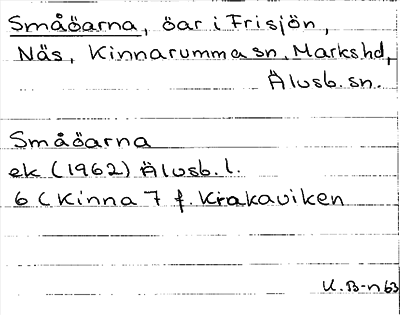 Småöarna, öar i Frisjön,
Näs, Kinnarumma sn. Marks hd,
Älvsb. sn.
Småöarna
ek (1962) Älvsb. l.
6 C Kinna 7 f. Krakaviken
U. B-n 63